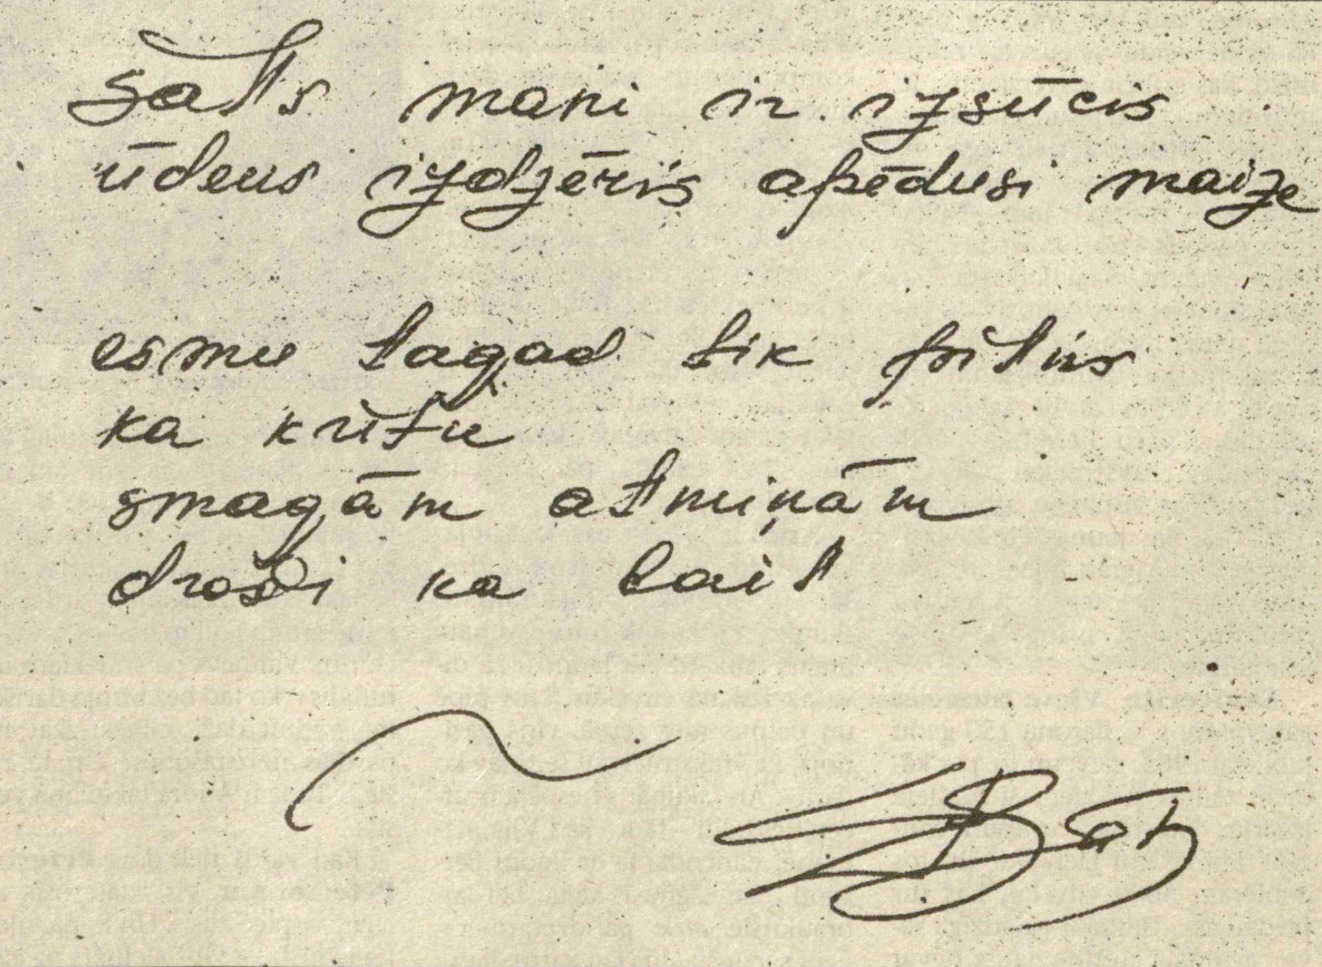 Sāls mani ir izsūcis
ūdens izdzēris apēdusi maize
esmu tagad tik
ka krītu
smagām atmiņām
droši ka lait